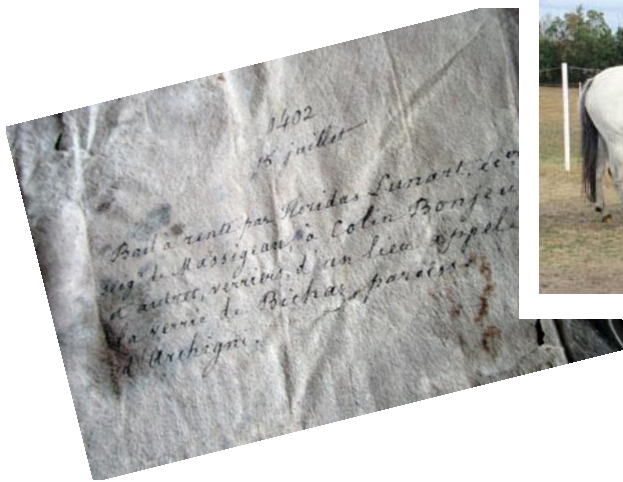 1402
15 juillet
Bail à rente par Floridas Lunart,
seigr de Massigeau, à Colin Bonjeu
et autres, verriers, d'un lieu appelé
la verrie de Bichat, paroisse
d'Archigni.